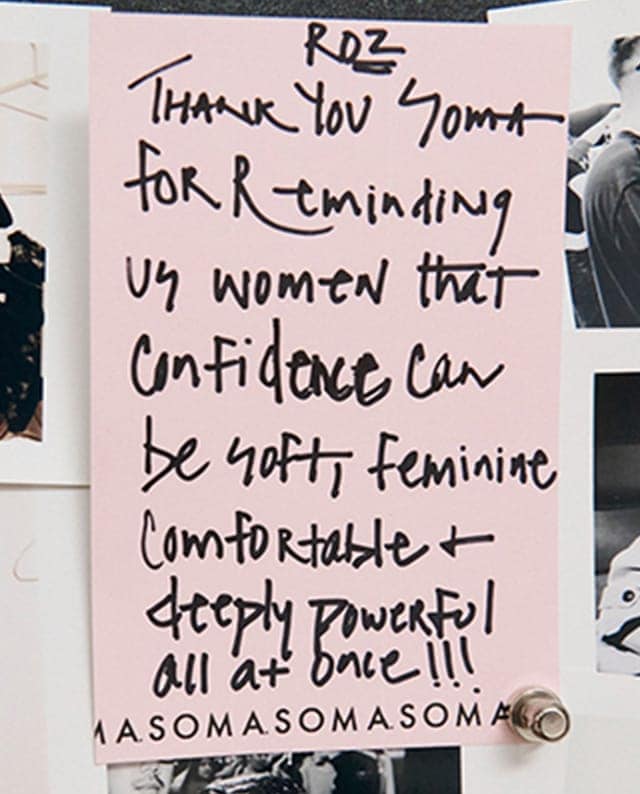 ROZ
THANK YOU SOMA
FOR Reminding
us women that
Confidence can
be soft, feminine
Comfortable +
deeply powerful
all at once!!!
MA.SOMA.SOMA.SOMA